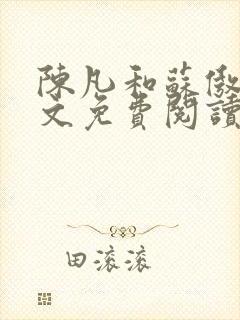 陳凡和蘇傲
文免費閱讀
田滾滾